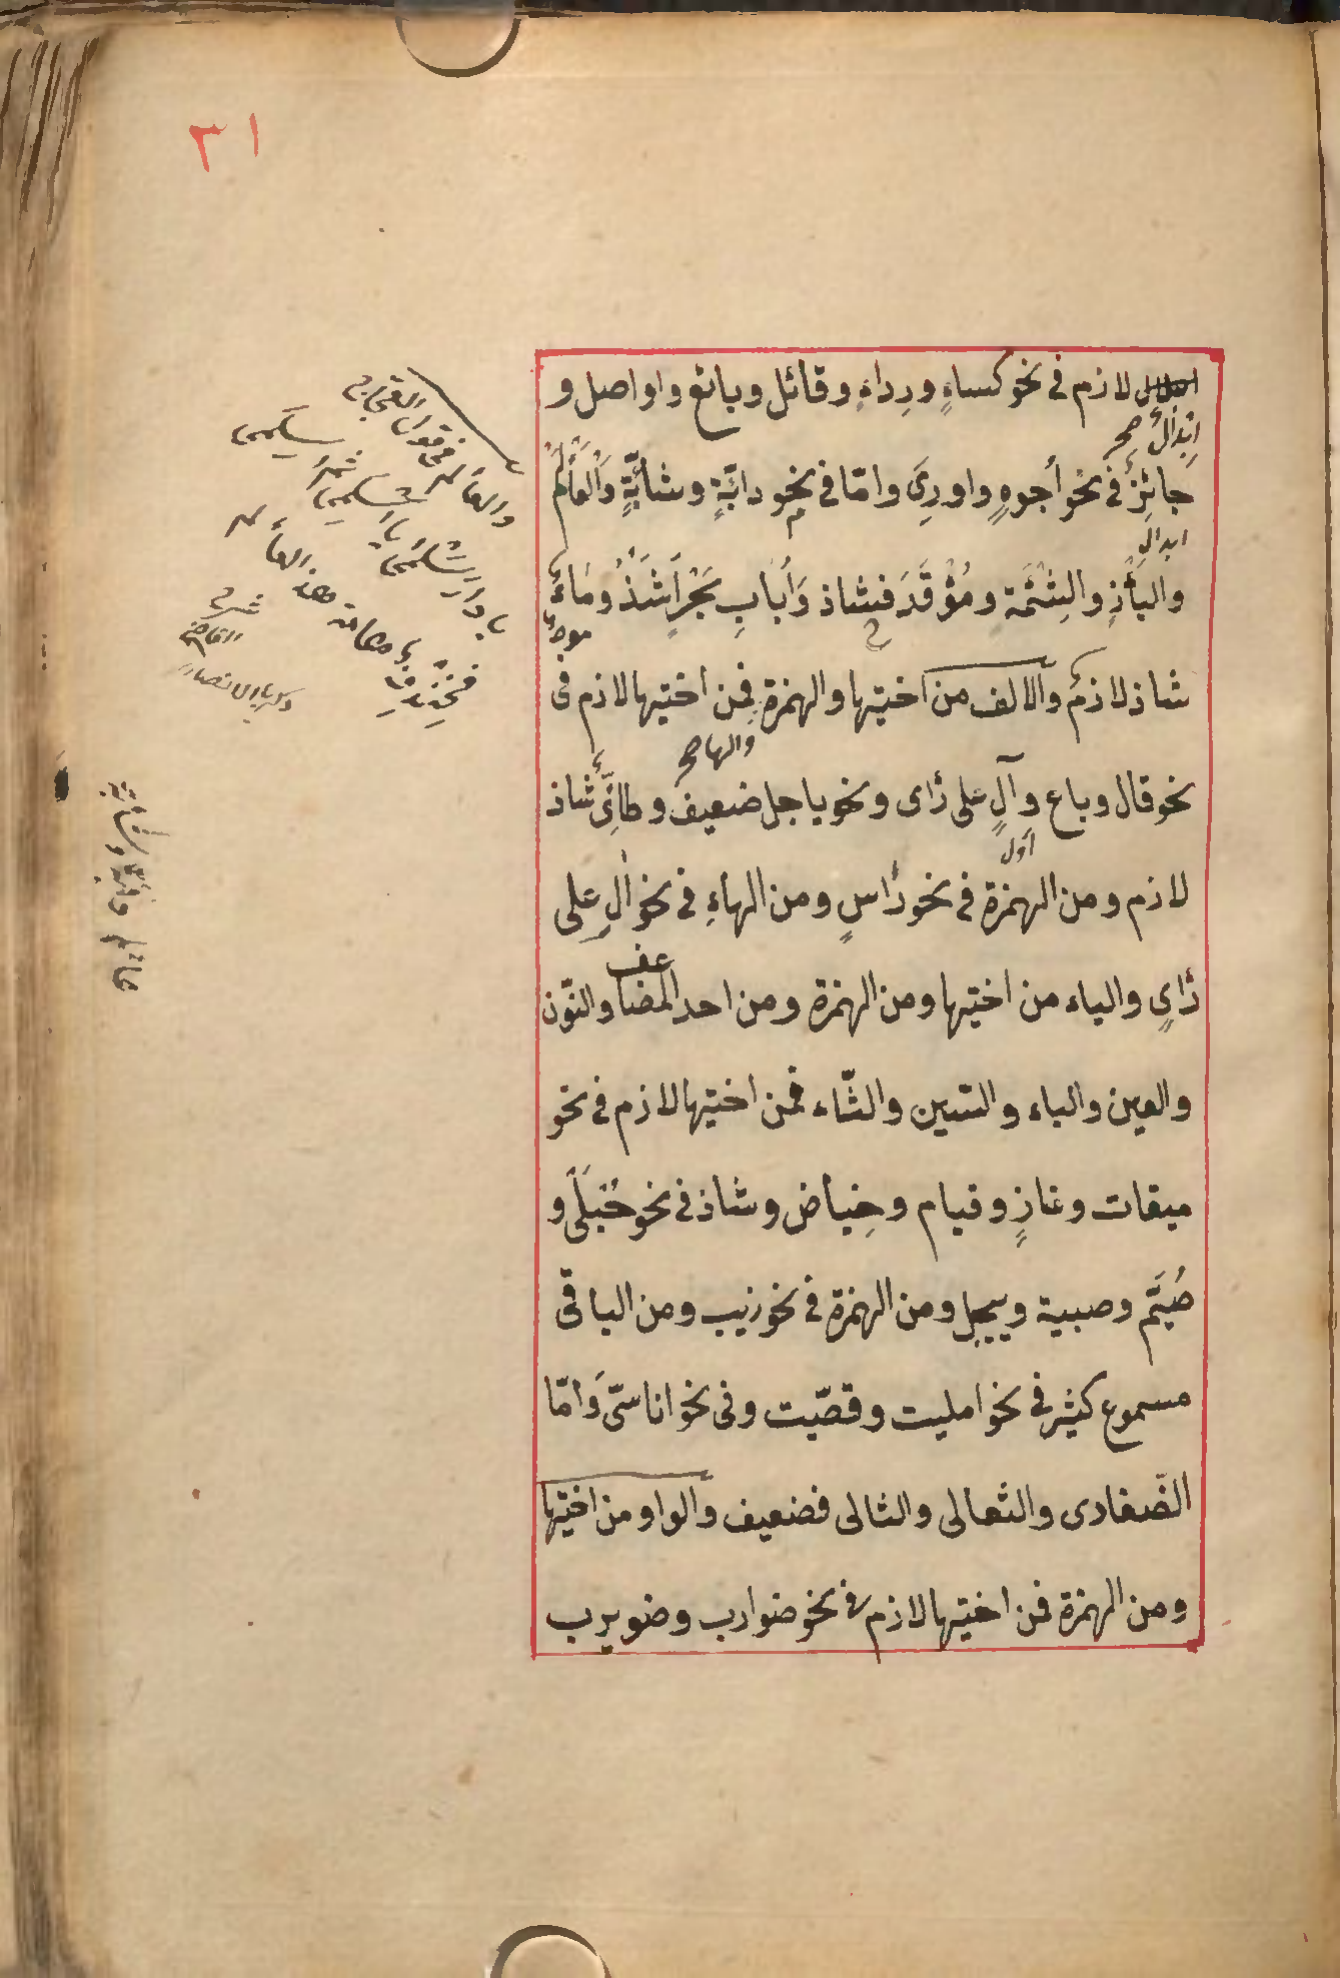 ٣١
لازم فى نحو كساءٍ ورِداءٍ وقائل وبائع واواصل و
اِبْدَالٌ صح
جائزٌ فى نحو أجوهٍ واورِىَ وامّا فى نحو دابّةٍ وشابّةٍ والعَألَم
ابدال
والبَأْزِ والشِئْمَة ومُؤْقَدَ فشاذ وَأُبابِ بَحْرٍ اَشَذُّ ومَاءٌ
شاذ لازمٌ والالف من اختيها والهمزة فمِن اختيها لازم فى
والها صح
نحو قال وباع وآلٍ على رٰاى ونحو ياجل ضعيف وطائِىٌّ شاذ
اول
لازم ومن الهمزة فى نحو رٰاسٍ ومن الهاءِ فى نحو اٰلٍ على
رٰاىٍ والياء من اختيها ومن الهمزة ومن احد المضاعف والنّون
والعين والباء والسّين والثّاء فمن اختيها لازم فى نحو
ميقات وغازٍ وقيام وحِياض وشاذ فى نحو حُبْلَى و
صُيَّم وصبية وييجل ومن الهمزة فى نحو زيب ومن الباقى
مسموع كثير فى نحو امليت وقصّيت وفى نحو اناسىّ وَامّا
الضّفادى والثعالى والثالى فضعيف والواو من اختيها
ومن الهمزة فمن اختيها لازم فى نحو ضوارب وضويرب
والعألم فى قول العجاج
يا دار سلمى يا اسلمى ثم اسلمى
فخندف هامة هذا العألم
شرح